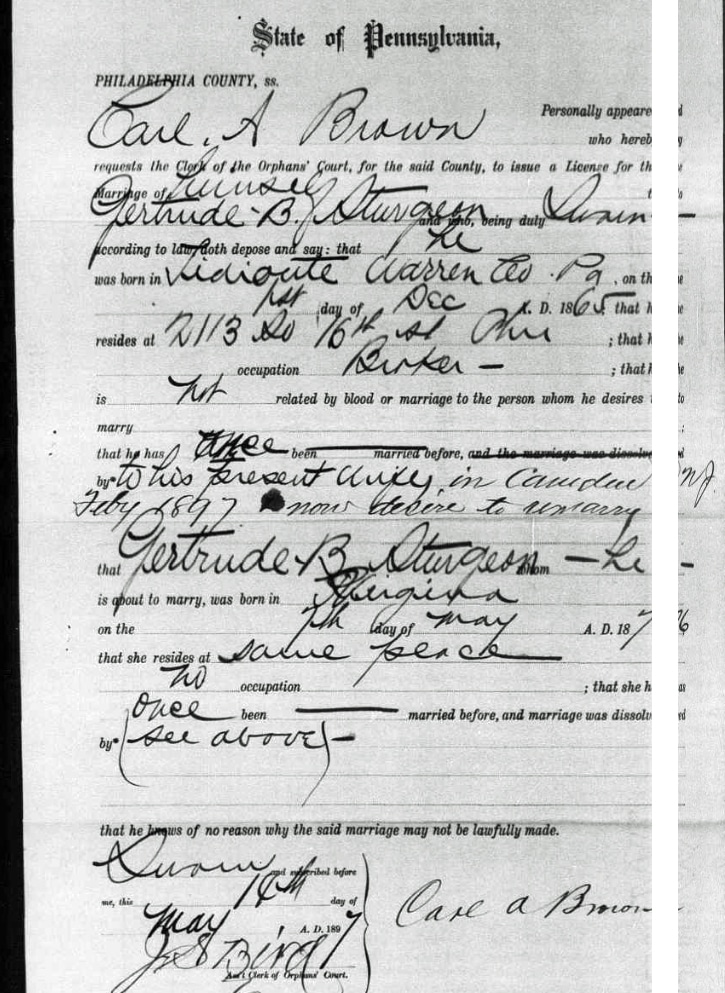 State of Pennsylvania,
PHILADELPHIA COUNTY, ss.
Personally appeare d
Carl. A Brown who hereb y
requests the Clerk of the Orphans' Court, for the said County, to issue a License for th
Marriage of himself t o
Gertrude B. Sturgeon and who, being duly Sworn —
according to law doth depose and say: that he
was born in Tidioute Warren Co. Pa, on th e
1st day of Dec A. D. 1865 that h e
resides at 2113 So 16th st Phil ; that h e
occupation Broker — ; that h e
is not related by blood or marriage to the person whom he desires to
marry ;
that he has once been married before, and the marriage was dissolve
by* to his present wife, in Camden NJ
Feby 1897 now desire to remarry
that Gertrude B. Sturgeon whom — he —
is about to marry, was born in Virginia
on the 7th day of May A. D. 1876
that she resides at same peace
no occupation ; that she h as
once been married before, and marriage was dissolv ed
by* (see above) —
that he knows of no reason why the said marriage may not be lawfully made.
Sworn and subscribed before
me, this 14th day of
May A. D. 1897
J S Bird
Ass't Clerk of Orphans' Court.
Carl A Brown